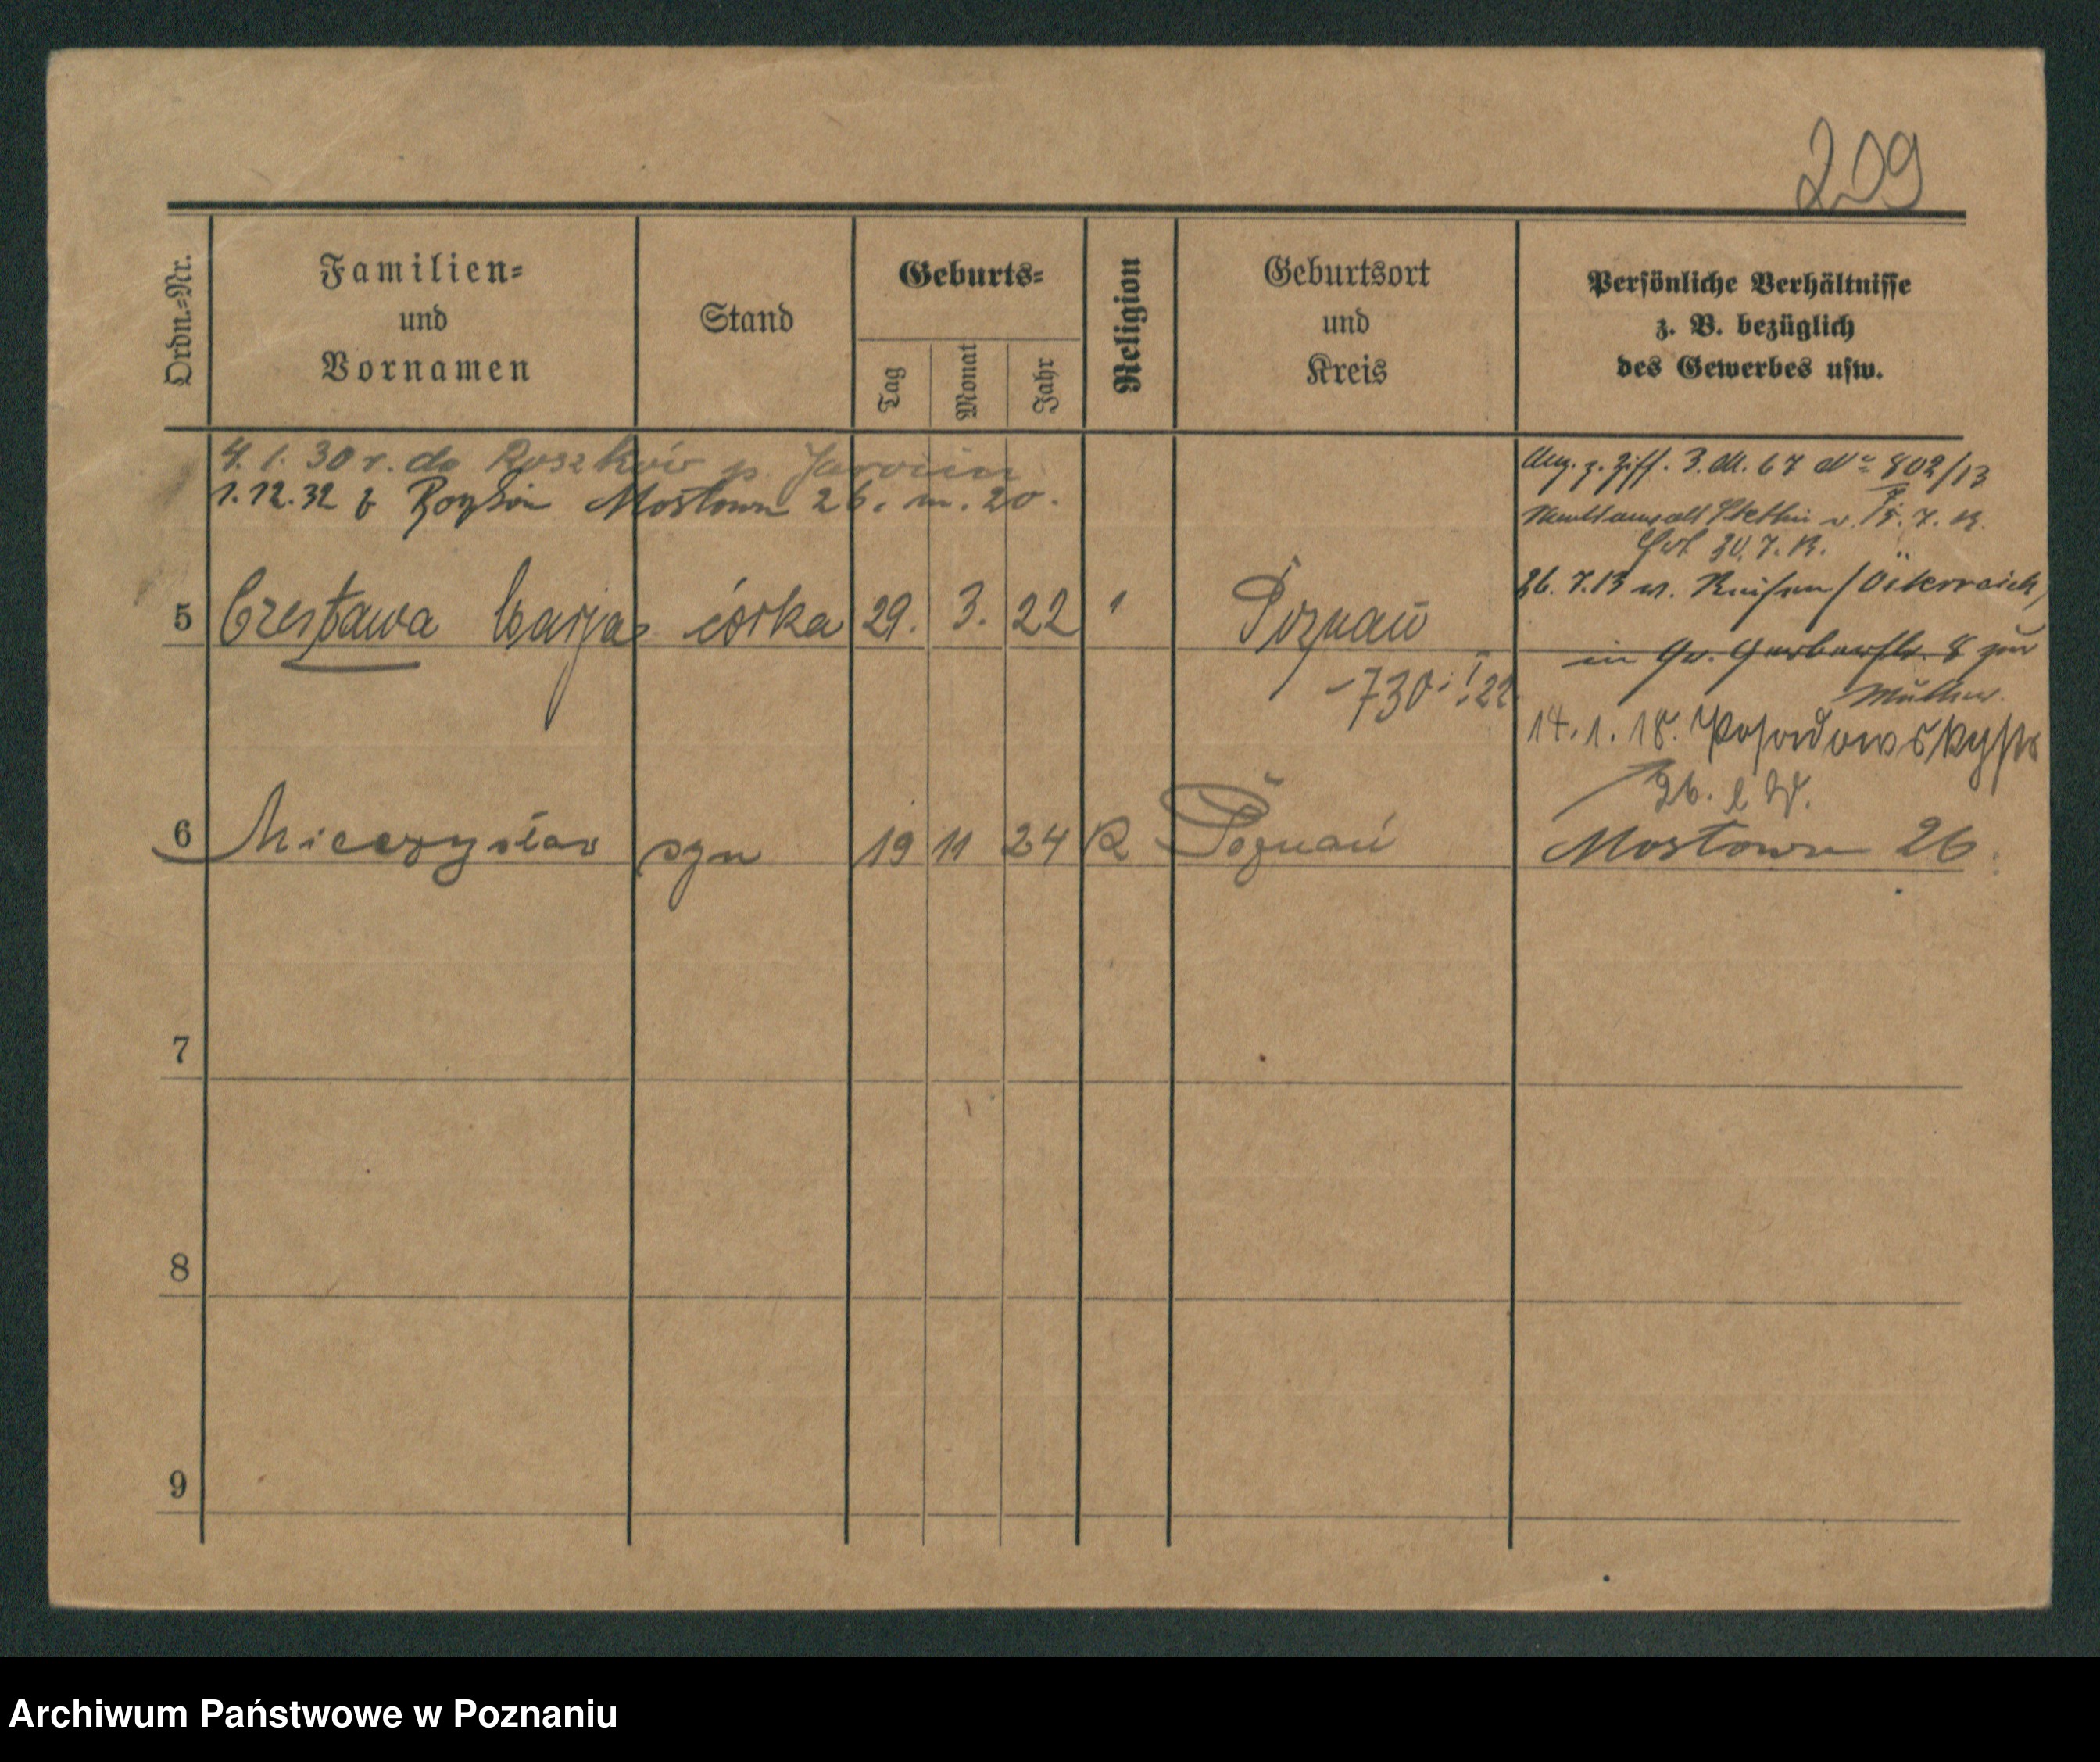 209
Ordn.=Nr.
Familien=
und
Vornamen
Stand
Geburts=
Tag
Monat
Jahr
Religion
Geburtsort
und
Kreis
Persönliche Verhältnisse
z. B. bezüglich
des Gewerbes usw.
4. 1. 30 r. do Roszków p. Jarocin
1.12.32 z Mostowa 26. m. 20.
z. Ziff. 3. M. 67 No 802/13
Stettin v. 7.
30. 7. 13.
26. 7. 13 /Österreich/
5 Czesława Marja córka 29. 3. 22 " Poznań
in Gr. Gerberstr. 8 zur
Mutter.
730 22
14. 1. 18. Posadowskystr
26. b W.
6 Mieczysław syn 19 11 24 R Poznań Mostowa 26
7
8
9
Archiwum Państwowe w Poznaniu